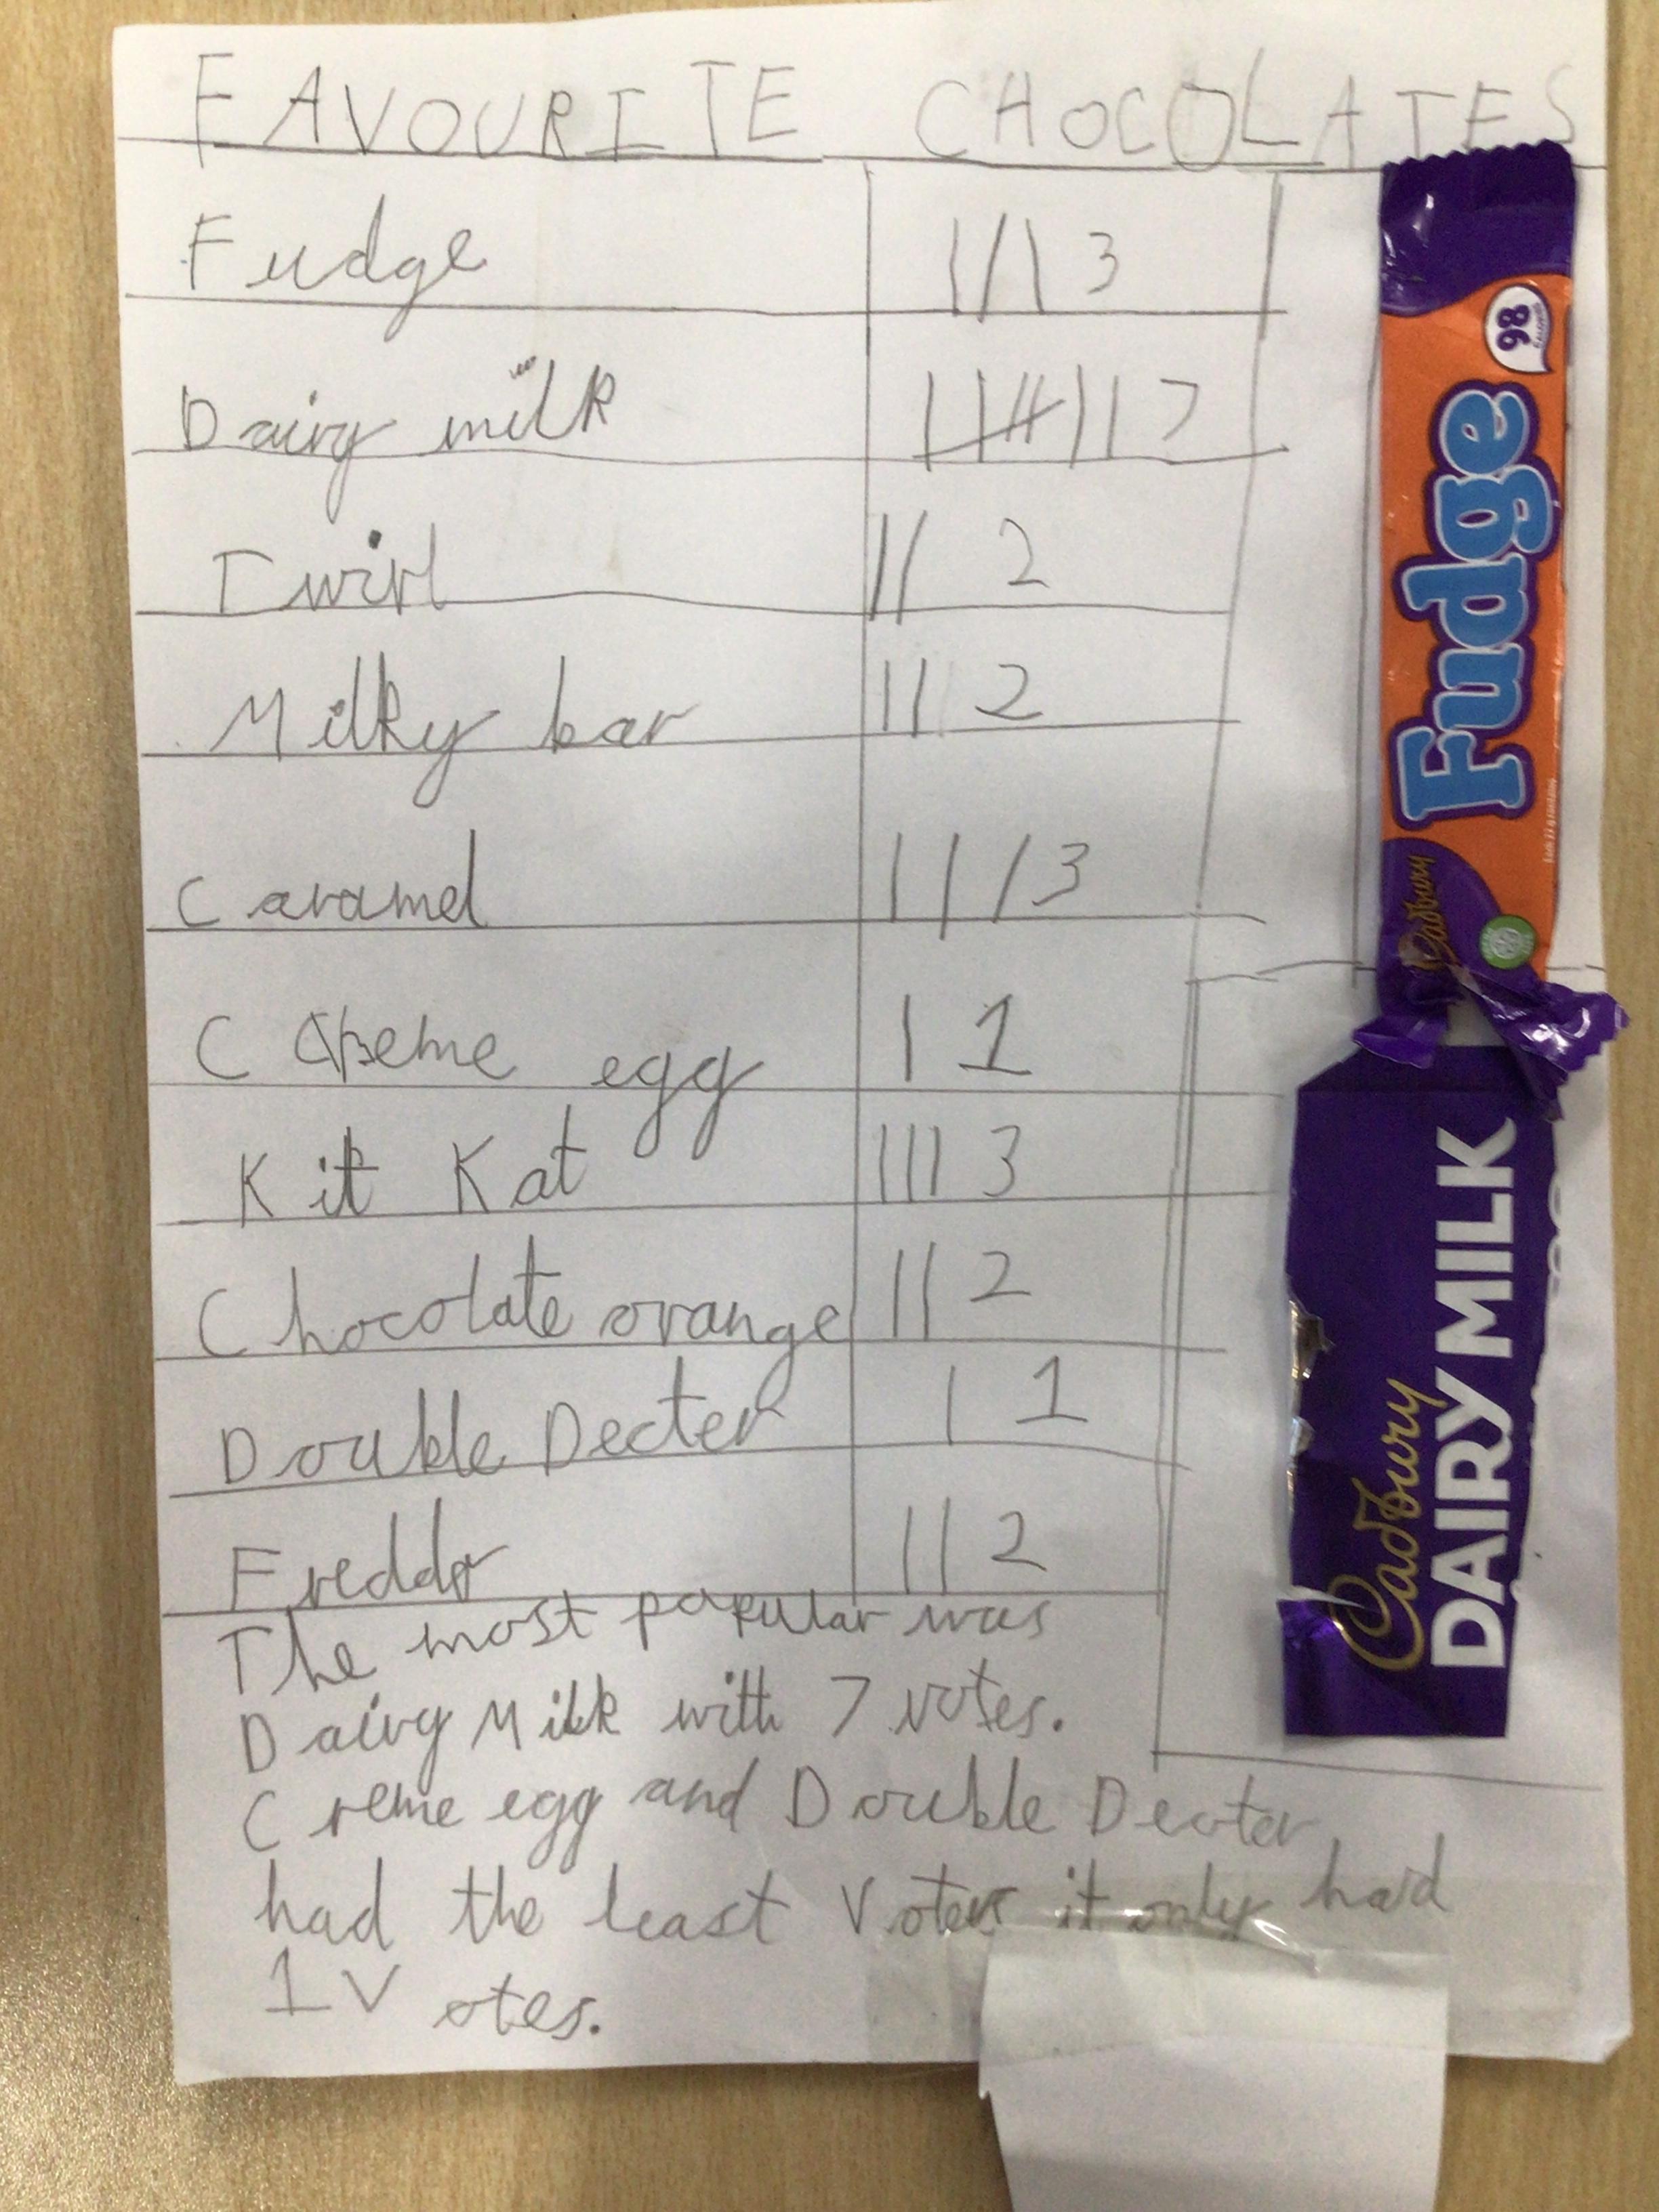 FAVOURITE CHOCOLATES
Fudge 3
Dairy milk 7
Twirl 2
Milky bar 2
Caramel 3
C Creme egg 1
Kit Kat 3
Chocolate orange 2
Double Decter 1
Freddo 2
The most popular was
Dairy Milk with 7 votes.
Creme egg and Double Decter
had the least Votes it only had
1 Votes.
98
Fudge
Cadbury
Cadbury
DAIRY MILK